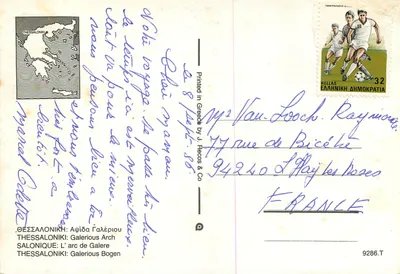 le 8 Sept. 86
Chère maman,
Notre voyage se passe très bien.
le temps ici est merveilleux
tout va pour le mieux.
nous pensons bien à toi
et nous t'embrassons
bien fort à
bientôt.
Marcel Colette
ΘΕΣΣΑΛΟΝΙΚΗ: Αψίδα Γαλέριου
THESSALONIKI: Galerious Arch
SALONIQUE: L' arc de Galere
THESSALONIKI: Galerious Bogen
Printed in Greece by J. Recos & Co
HELLAS 32
ΕΛΛΗΝΙΚΗ ΔΗΜΟΚΡΑΤΙΑ
Van Looch Raymonde
77 rue de Bicêtre
94240 L'Haÿ les Roses
FRANCE
9286.T